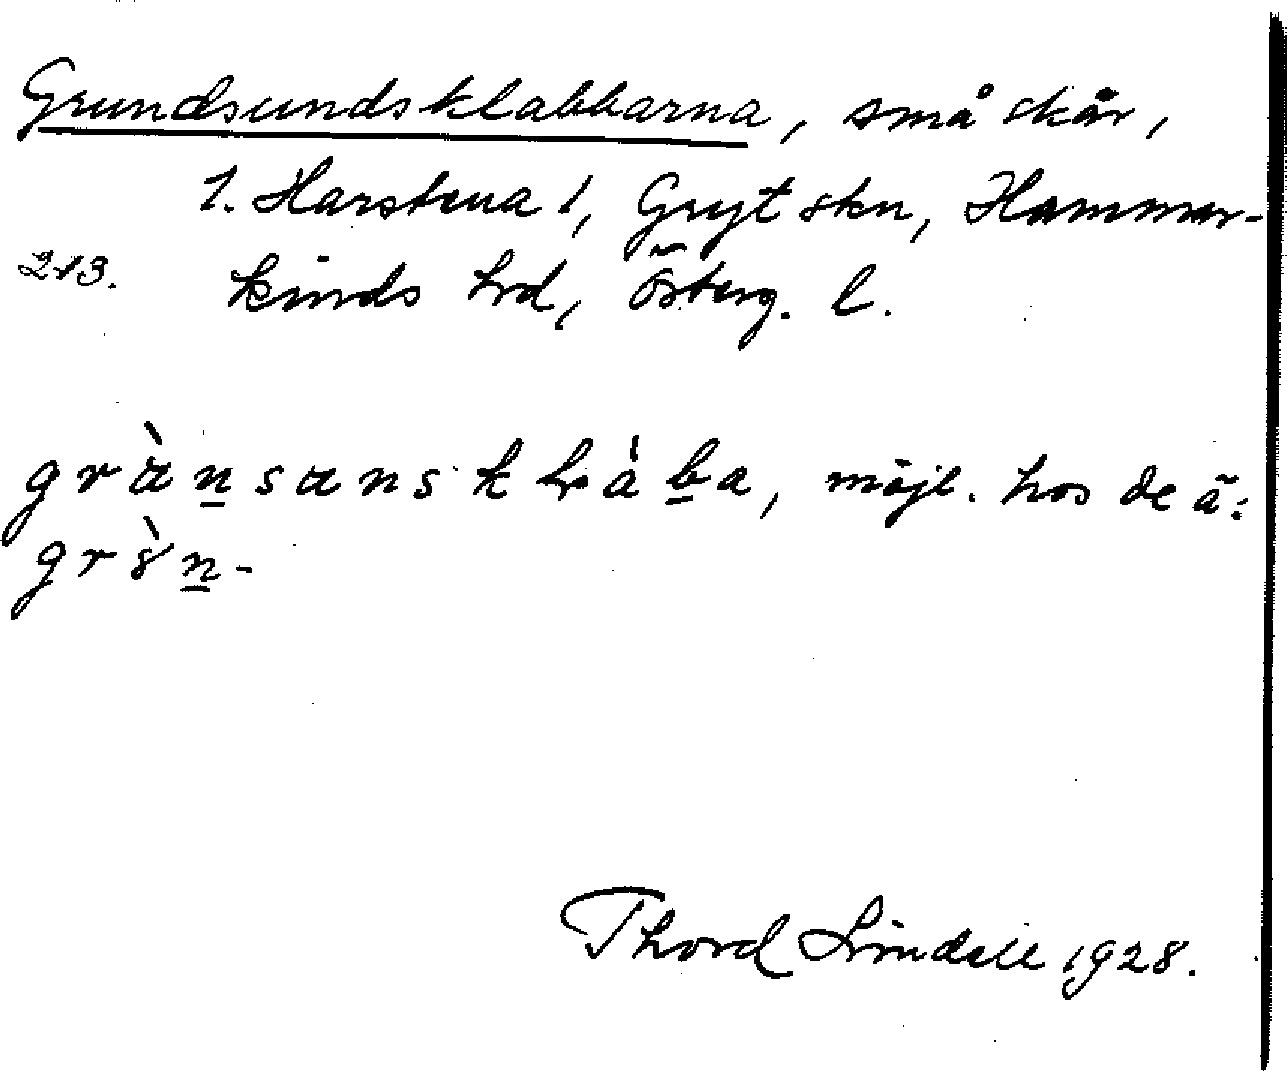 Grundsundsklabbarna, små skär,
1. Harstena 1, Gryt skn, Hammar-
213. kinds hrd, Österg. l.
gràn̲sansklàb̲a, möjl. hos de ä:
grɤ̀n̲-
Thord Lindell 1928.